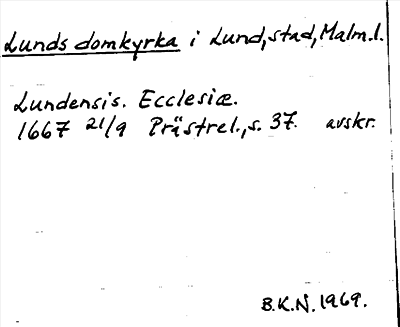 Lunds domkyrka i Lund, stad, Malm.l.
Lundensis. Ecclesiæ.
1667 21/9 Prästrel., s. 37. avskr.
B.K.N. 1969.